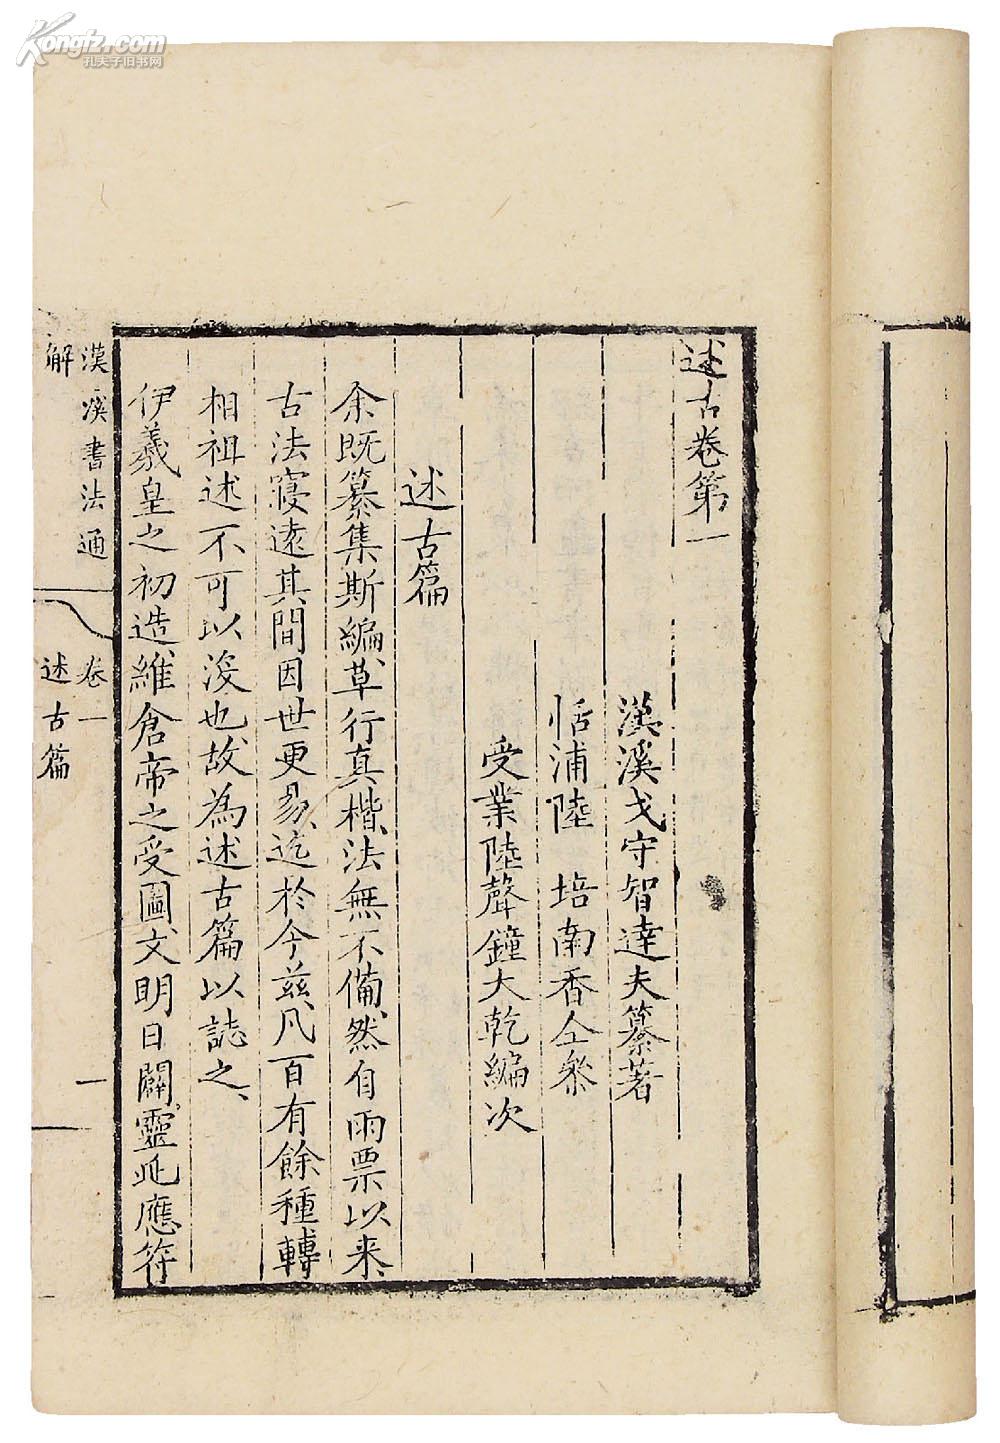 Kongfz.com
孔夫子旧书网
述古卷第一
漢溪戈守智達夫纂著
恬浦陸 培南香仝叅
受業陸聲鐘大乾編次
述古篇
余既纂集斯編、草行真楷、法無不備、然自雨粟以来、
古法寖遠、其間因世更易、迄於今茲、凡百有餘種、轉
相祖述、不可以沒也、故為述古篇以誌之、
伊羲皇之初造、維倉帝之受圖、文明日闢、靈兆應符
漢溪書法通
解
卷一
述古篇
一